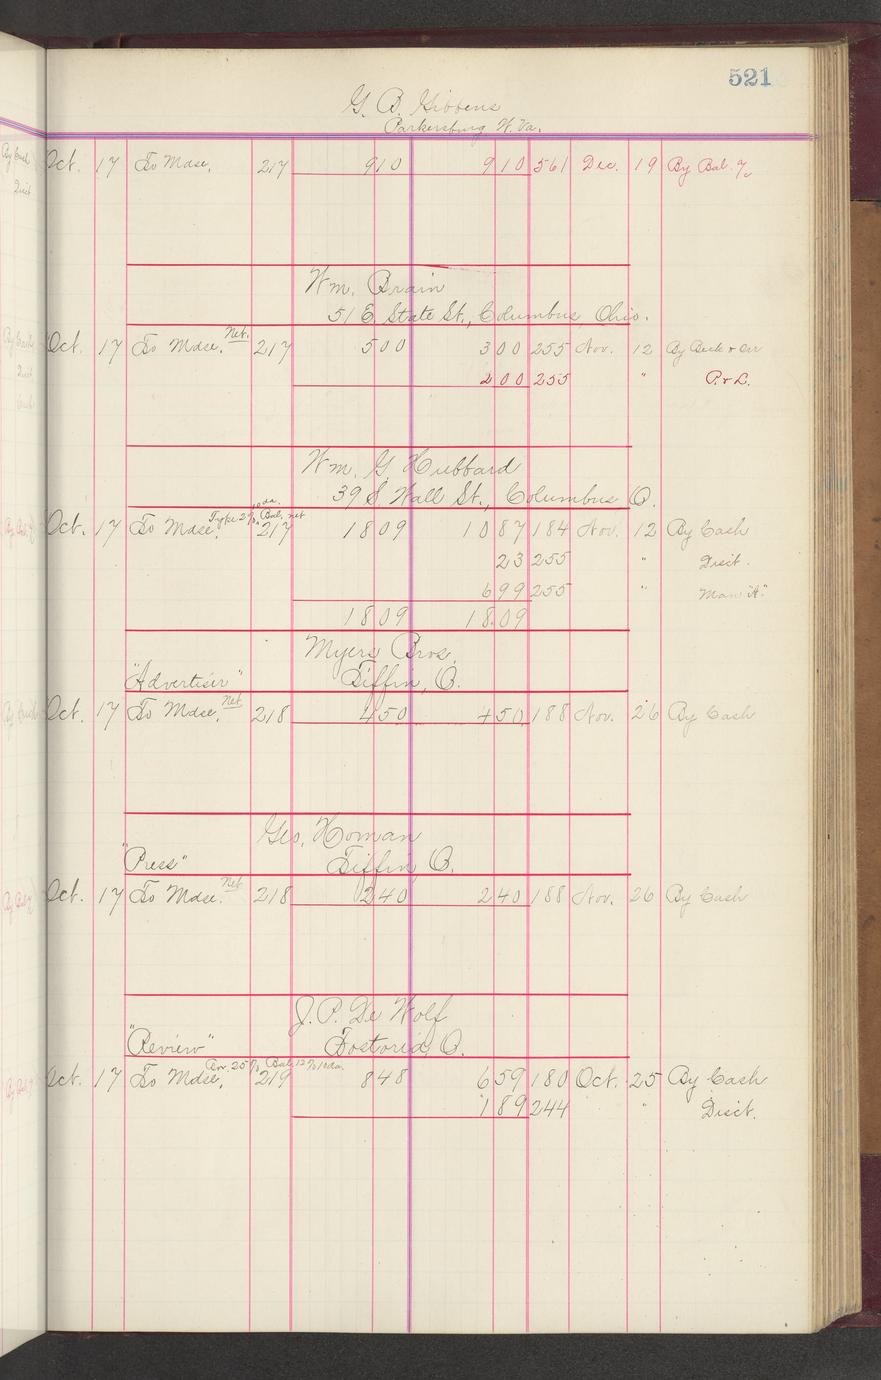 521
G. B. Gibbens
Parkersburg W. Va.
Oct. 17 To Mdse. 217 910 910 561 Dec. 19 By Bal. %
Wm. Brain
51 E. State St., Columbus, Ohio.
Net.
Oct. 17 To Mdse. 217 500 300 255 Nov. 12 By Beck & Orr
200 255 " P. & L.
Wm. G. Hubbard
39 S. Wall St., Columbus O.
Type 2% 10 da. Bal. net
Oct. 17 To Mdse. 217 1809 1087 184 Nov. 12 By Cash
23 255 " Disct.
699 255 " Man "A"
1809 18.09
Myers Bros.
"Advertiser" Tiffin, O.
Net
Oct. 17 To Mdse. 218 450 450 188 Nov. 26 By Cash
Geo. Homan
"Press" Tiffin O.
Net
Oct. 17 To Mdse. 218 240 240 188 Nov. 26 By Cash
J. P. De Wolf
"Review" Fostoria, O.
25% Bal. 12% 10 da.
Oct. 17 To Mdse. 219 848 659 180 Oct. 25 By Cash
189 244 " Disct.